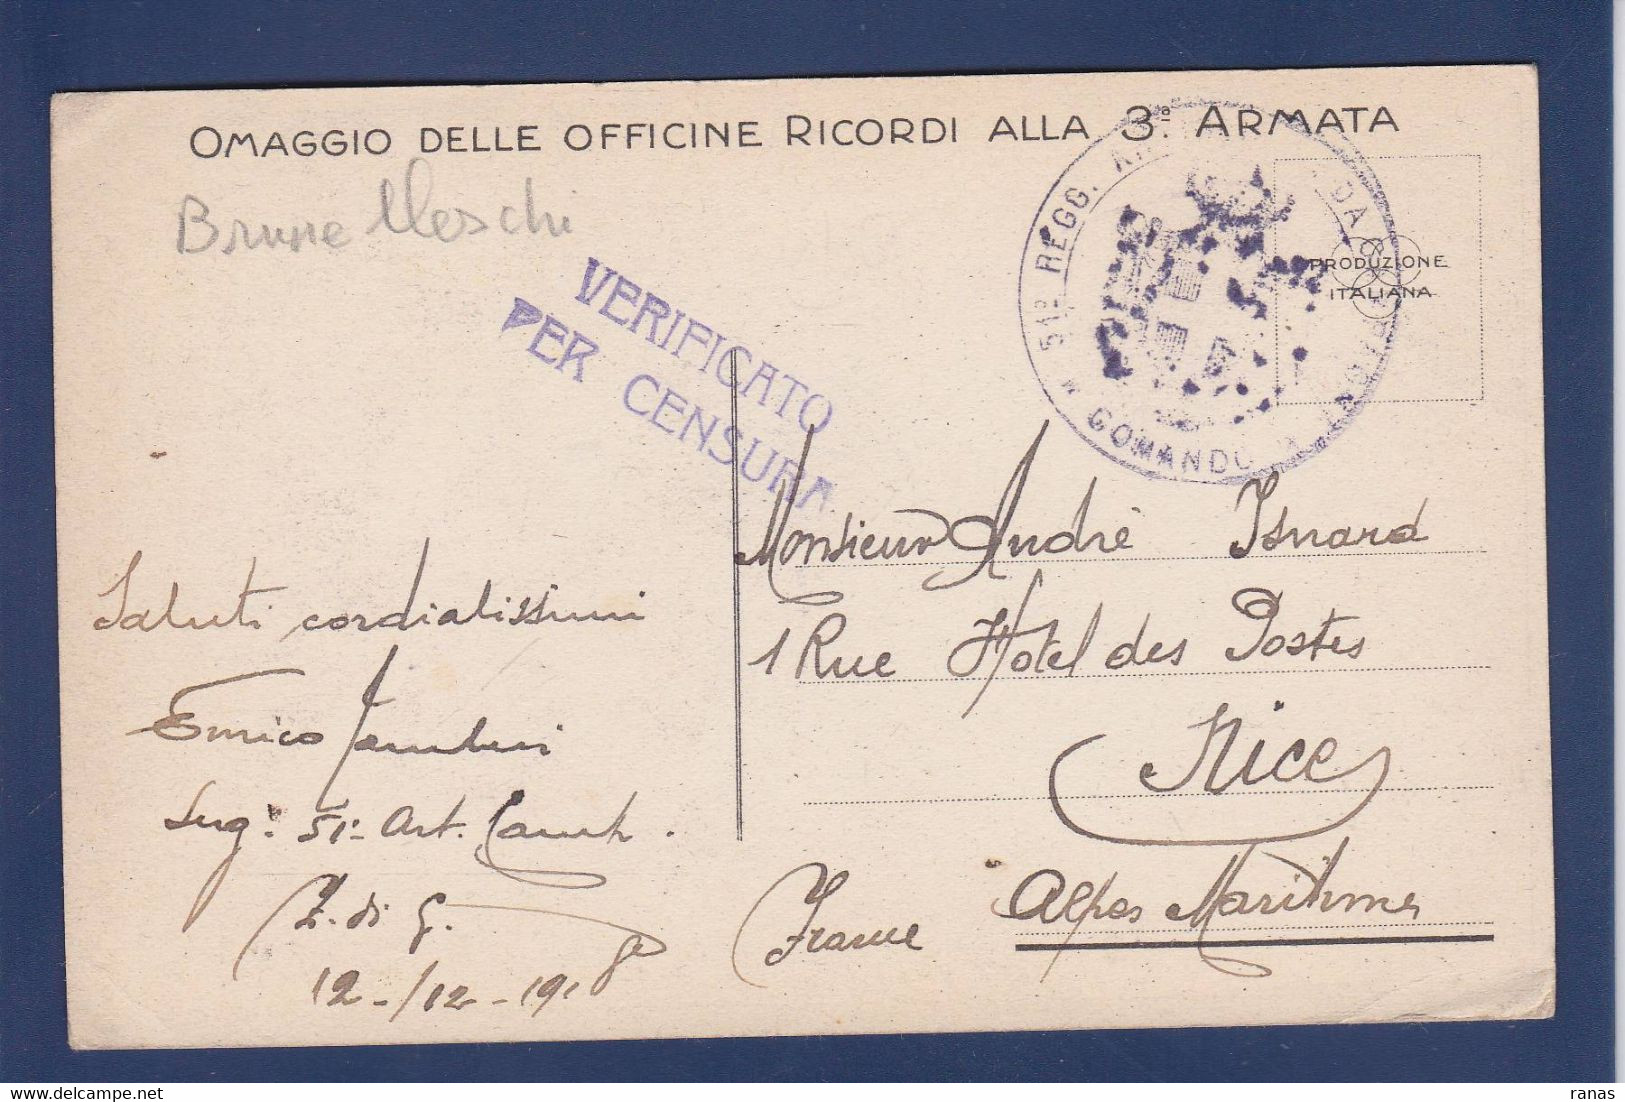 OMAGGIO DELLE OFFICINE RICORDI ALLA 3ª ARMATA
VERIFICATO
PER CENSURA
51º REGG.
COMANDO
PRODUZIONE
ITALIANA
Saluti cordialissimi
Enrico
51º Art. Camp.
Z. di G.
12-/12-1918
Monsieur Andrè Isnard
1 Rue Hotel des Postes
Nice
Alpes Maritimes
France
ranas